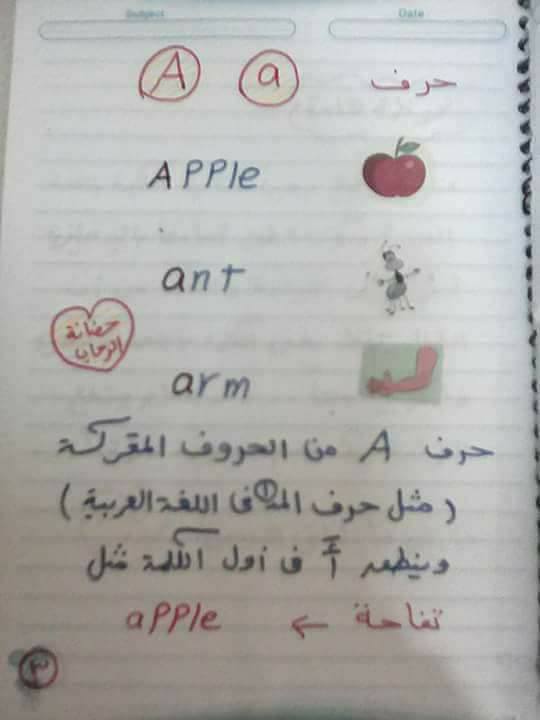 Subject Date
حرف a A
APPle
ant
حضانة
الرحاب
arm
حرف A من الحروف المتحركة
(مثل حرف المد ا فى اللغة العربية)
وينطق أَ فى أول الكلمة مثل
تفاحة ← aPPle
٣